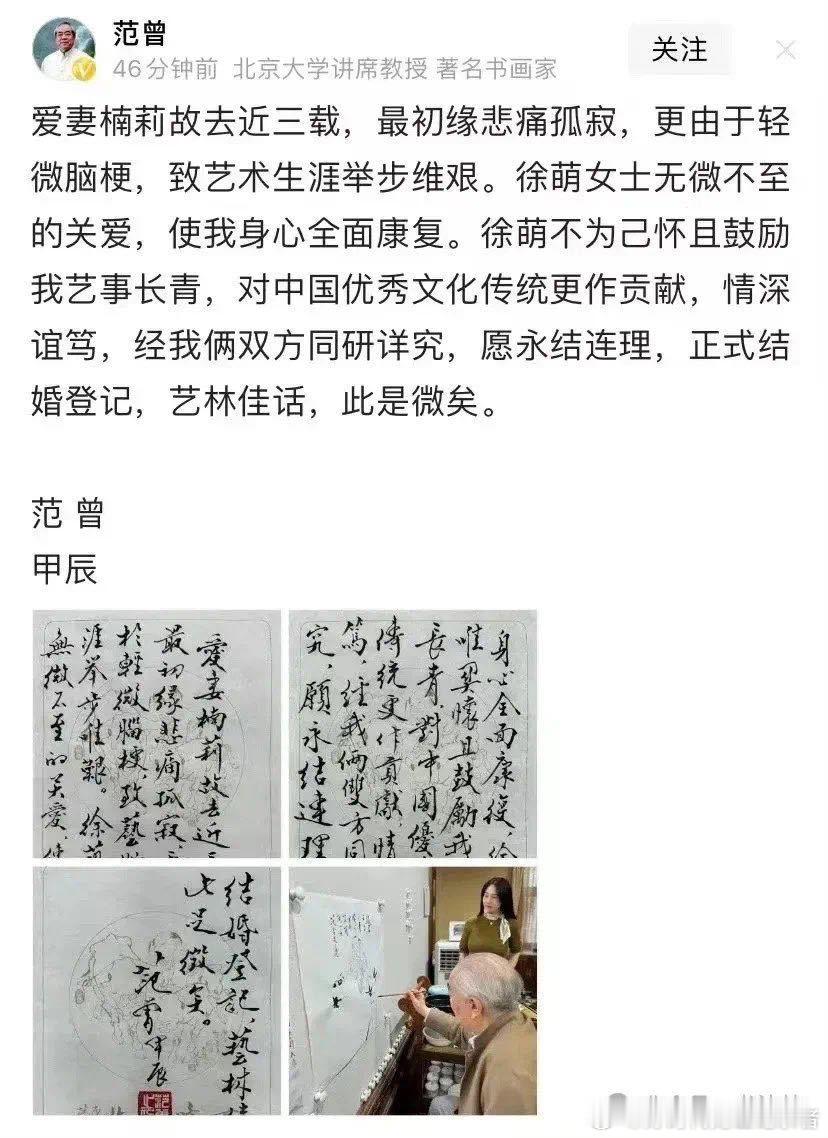 范曾
46分钟前 北京大学讲席教授 著名书画家
关注
爱妻楠莉故去近三载，最初缘悲痛孤寂，更由于轻
微脑梗，致艺术生涯举步维艰。徐萌女士无微不至
的关爱，使我身心全面康复。徐萌不为己怀且鼓励
我艺事长青，对中国优秀文化传统更作贡献，情深
谊笃，经我俩双方同研详究，愿永结连理，正式结
婚登记，艺林佳话，此是微矣。
范 曾
甲辰
愛妻楠莉故去近
最初緣悲痛孤寂，
於輕微腦梗，致藝
涯举步唯艱。徐萌
無微不至的关爱，使
身心全面康復，徐
懷且鼓勵我
長青，對中國優
傳統更作貢獻，情
篤，經我俩雙方同
究，願永结連理
结婚登記，藝林
此足徵矣。
范曾甲辰